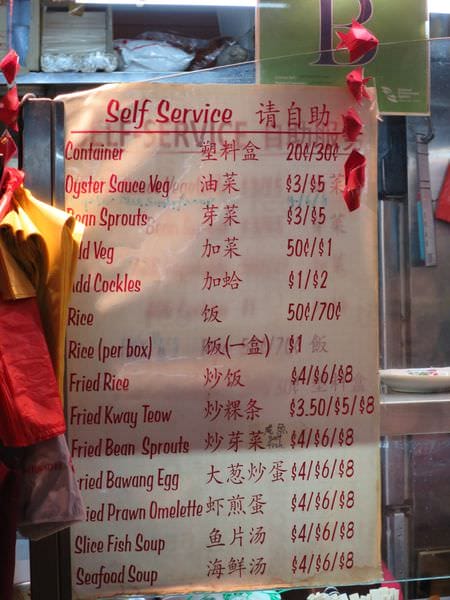 Self Service 请自助
Container 塑料盒 20¢/30¢
Oyster Sauce Veg 油菜 $3/$5
Bean Sprouts 芽菜 $3/$5
Add Veg 加菜 50¢/$1
Add Cockles 加蛤 $1/$2
Rice 饭 50¢/70¢
Rice (per box) 饭(一盒) $1
Fried Rice 炒饭 $4/$6/$8
Fried Kway Teow 炒粿条 $3.50/$5/$8
Fried Bean Sprouts 炒芽菜 $4/$6/$8
Fried Bawang Egg 大葱炒蛋 $4/$6/$8
Fried Prawn Omelette 虾煎蛋 $4/$6/$8
Slice Fish Soup 鱼片汤 $4/$6/$8
Seafood Soup 海鲜汤 $4/$6/$8